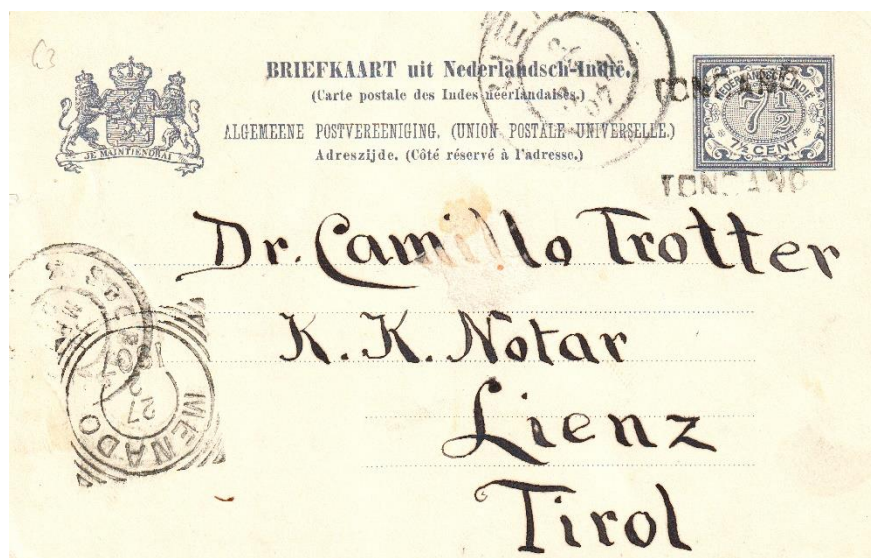 C3
BRIEFKAART uit Nederlandsch-Indië.
(Carte postale des Indes néerlandaises.)
ALGEMEENE POSTVEREENIGING. (UNION POSTALE UNIVERSELLE.)
Adreszijde. (Côté réservé à l'adresse.)
JE MAINTIENDRAI
NEDERLANDSCH-INDIE
7 1/2
7½ CENT
TONDANO
TONDANO
Dr. Camillo Trotter
K. K. Notar
Lienz
Tirol
MENADO
27
2
1907